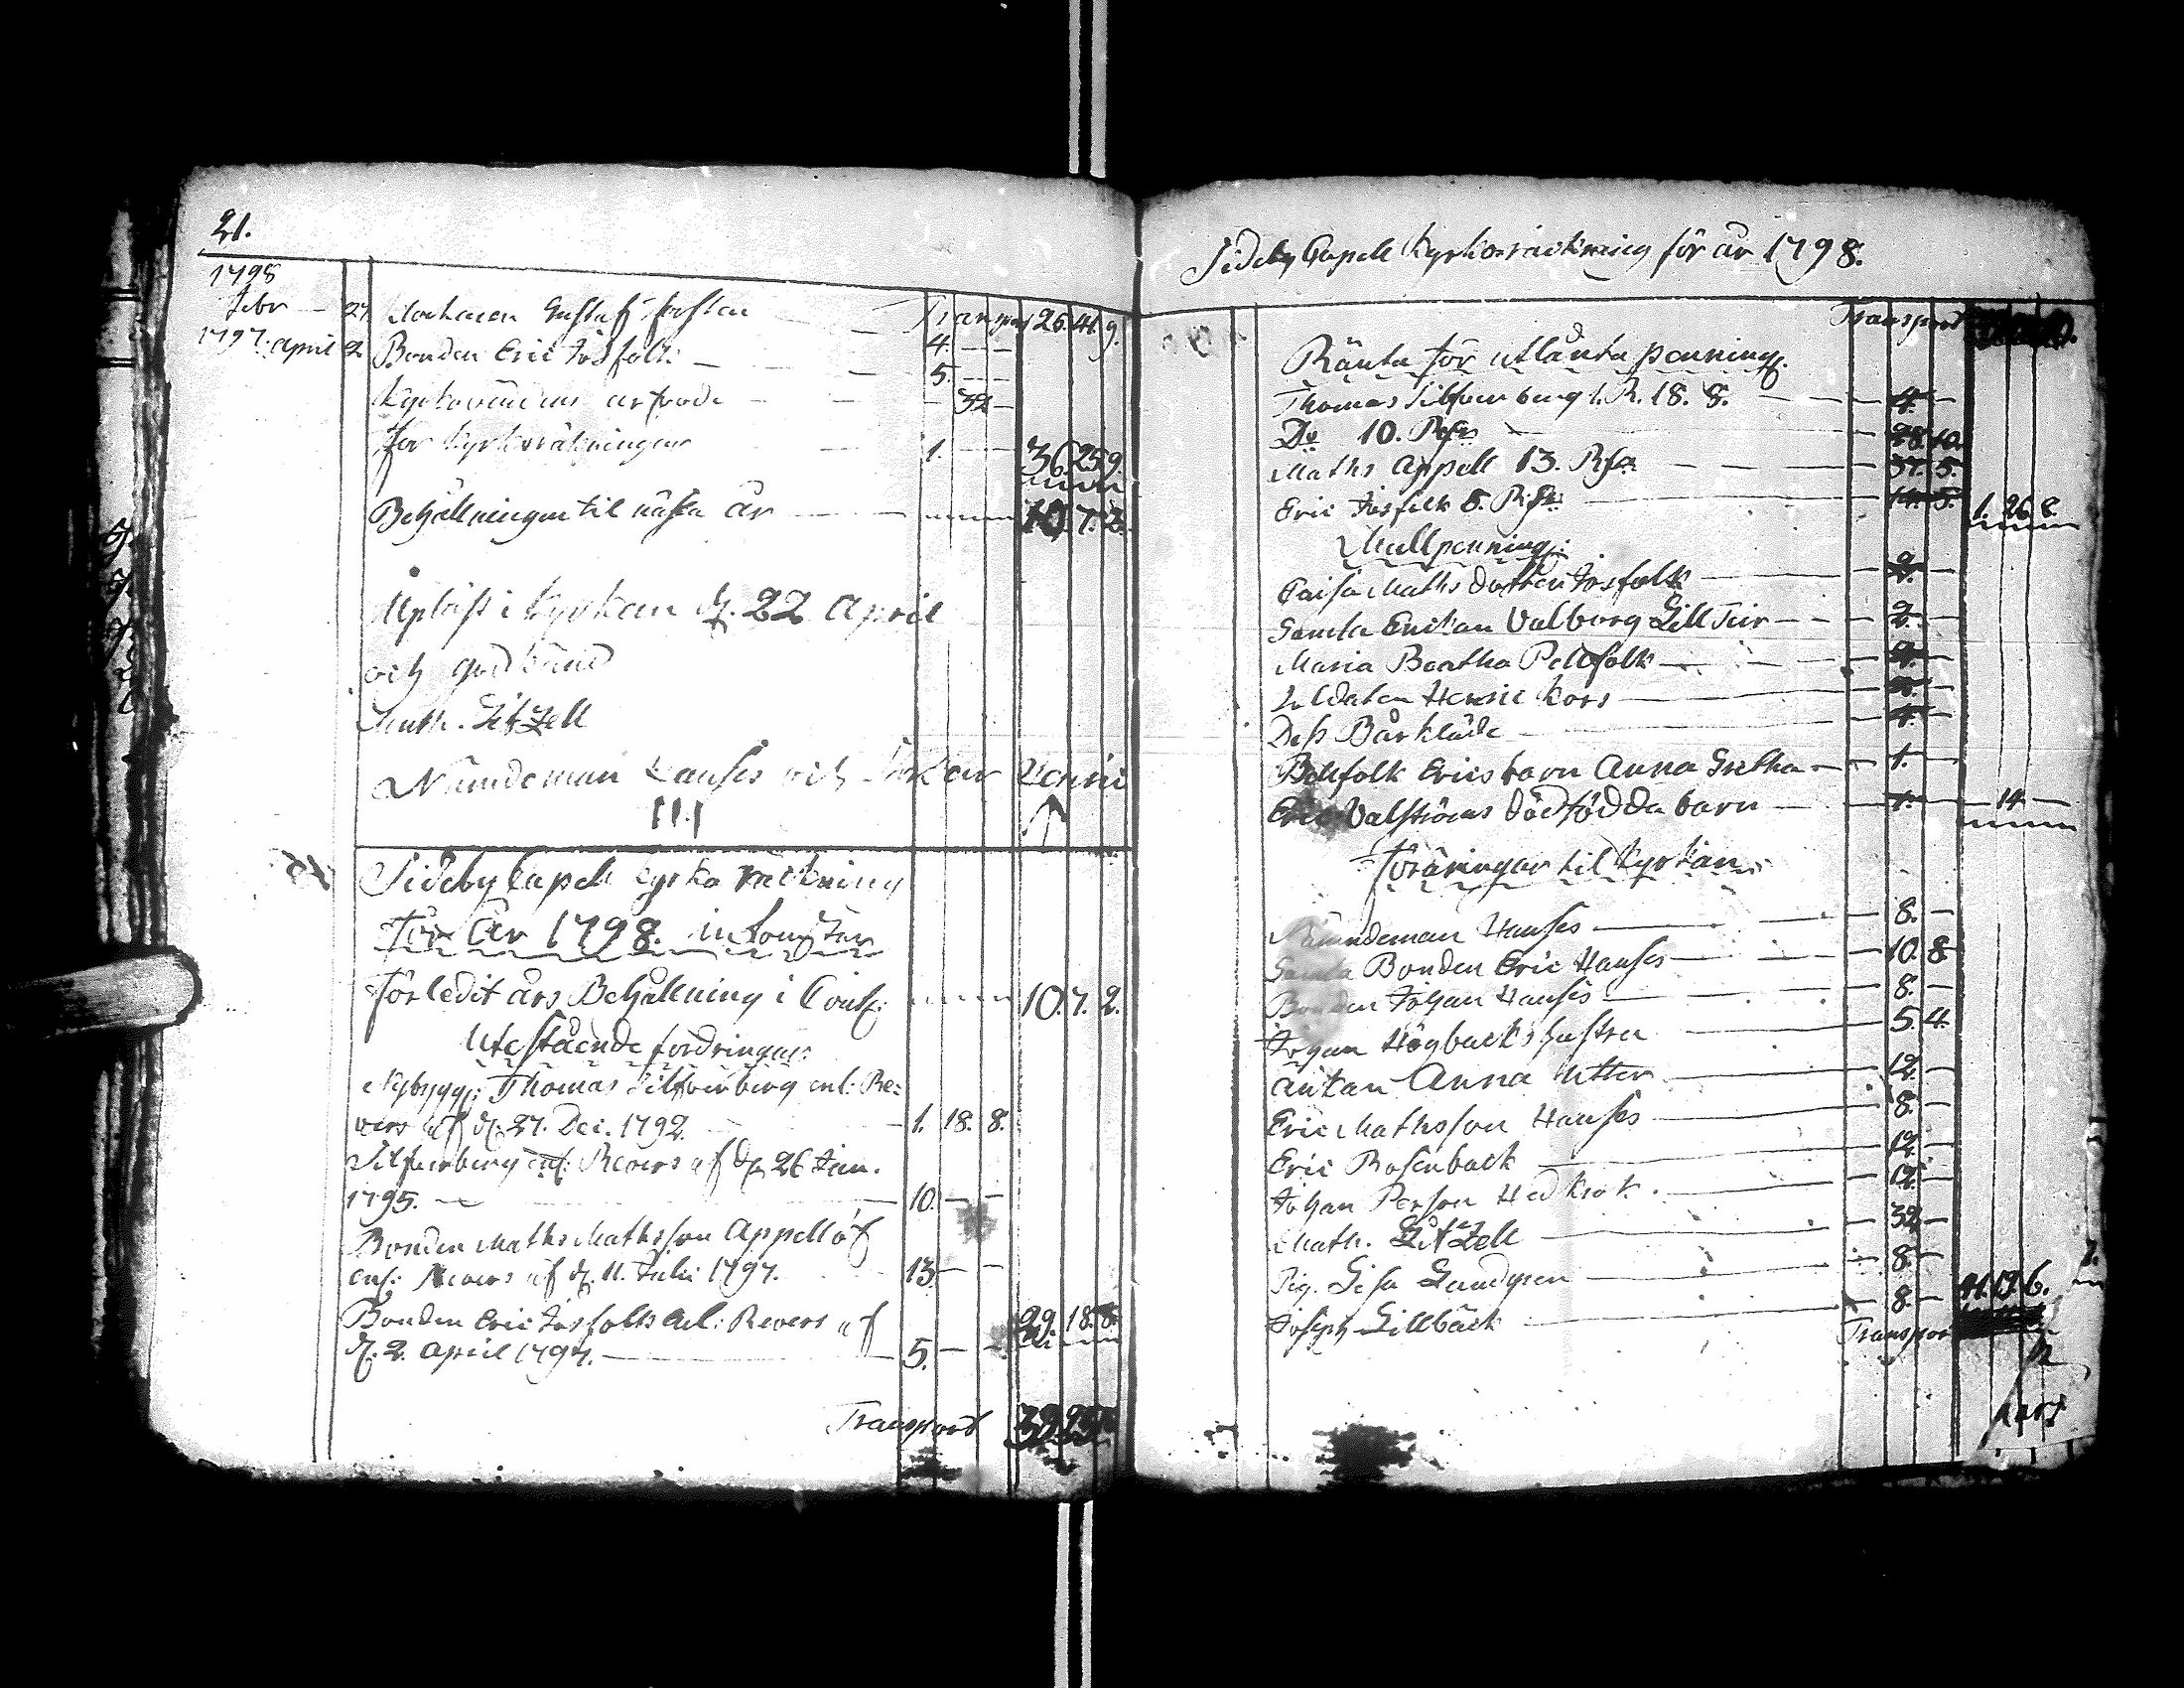 21.
1798
Febr — 27. Gustaf Forsten — Transport 26. 41. 9.
1797. April 2. Bonden Eric Josfolk — 4. — —
5. — —
Kyrkovärdens arfvode — — 32 —
för Kyrkoräkningen — 1. — — 36. 25. 9.
Behållningen til nästa år — 10. 7. 2.
Upläst i Kyrkan d. 22 April
och godkänd
Math. Gitzell
Nämndeman Hanses och Henric
Sideby Capell kyrko räckning
för år 1798. inkomster
Förledit års Behållning i Cont. 10. 7. 2.
Utestående fordringar
Nybygg: Thomas Silfverberg enl: Re-
vers af d. 27. Dec. 1792. — 1. 18. 8.
Silfverberg enl: Revers af d. 26 Jan.
1795. — 10. — —
Bonden Maths Mathsson Appellöf
enl: Revers af d. 11. Julii 1797. 13. — —
Bonden Eric Josfolk enl: Revers af 29. 18. 8.
d. 2. April 1797. — 5. — —
Transport 39. 25.
Sideby Capell Kyrkoräckning för år 1798.
Transport
Ränta för utlånta penning.
Thomas Silfverberg 1. R. 18. 8. — 4. —
Do 10. Rdr — 28. 10.
Maths Appell 13. Rdr — 37. 5.
Eric Josfolk 5. Rdr — 14. 5. 1. 26. 8.
Mullpenning:
Caisa Maths dotter Josfolk — 2. —
Gamla Enkan Valborg Lillteir — 2. —
Maria Beatha Pellfolk —
Soldaten Henric Kors —
Dess Bårkläde —
Pellfolk Erics barn Anna Gretha — 1. —
Eric Valströms dödfödda barn — 1. — 14 —
Föräringar til Kyrkan
Nämndeman Hanses — 8. —
Gamla Bonden Eric Hanses — 10. 8
Bonden Johan Hanses — 8. —
Johan Högbacks hustru — 5. 4.
Änkan Anna Utter — 12. —
Eric Mathsson Hanses — 8. —
Eric Rosenback — 12. —
Johan Person Hedkrok — 12. —
Math. Gitzell — 32 —
Pig. Lisa Lundgren — 8. —
Joseph Lillbäck — 8. — 41. 17. 6.
Transport